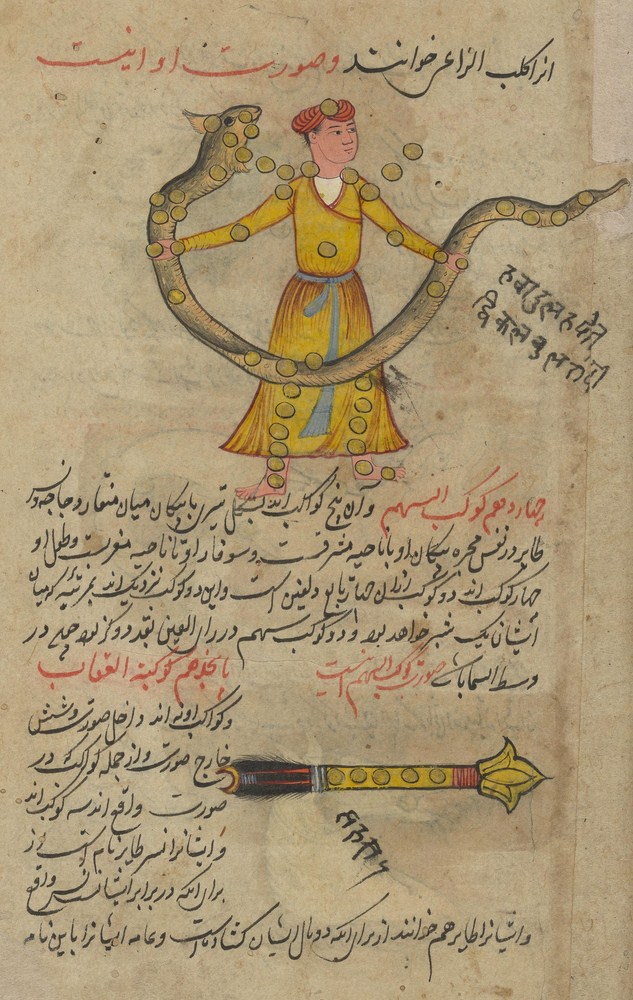 انرا کلب الراعی خوانند وصورت او اینست
چهاردهم کوکب السهم و آن پنج کوکب اند بشکل تیری با پیکان میان منقار دجاجه و نسر
طایر در نفس مجره پیکان او با ناحیه مشرقست و سوفار او تا ناحیه مغربست و طول او
چهار کوکب اند دو کوکب از ان چهار تابع دلفین است و این دو کوکب نزدیک اند بمرتبه که میان
ایشان یک شبر خواهد بود و دو کوکب سهم در رای العین بقدر دو کز بود جمله در
وسط السما باشد صورت کوکب السهم اینست
پانجدهم کوکبة العقاب
و کواکب او نه اند داخل صورت و شش
خارج صورت و از جمله کواکب که در
صورت واقع اند سه کوکب اند
و ایشانرا نسر طایر نام است از
برای انکه در برابر ایشان نسر واقع
و ایشانرا طایر هم خوانند از برای انکه دو بال ایشان کشاده است و عامه ایشانرا باین نام